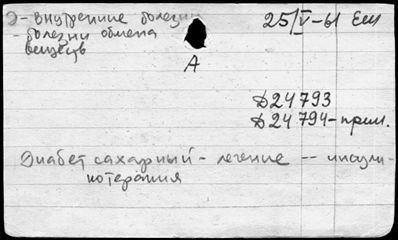 Э - внутренние болезни 25/V-61 Еш
- болезни обмена
веществ
А
Д24793
Д24794 - прил.
Диабет сахарный - лечение -- инсули-
нотерапия